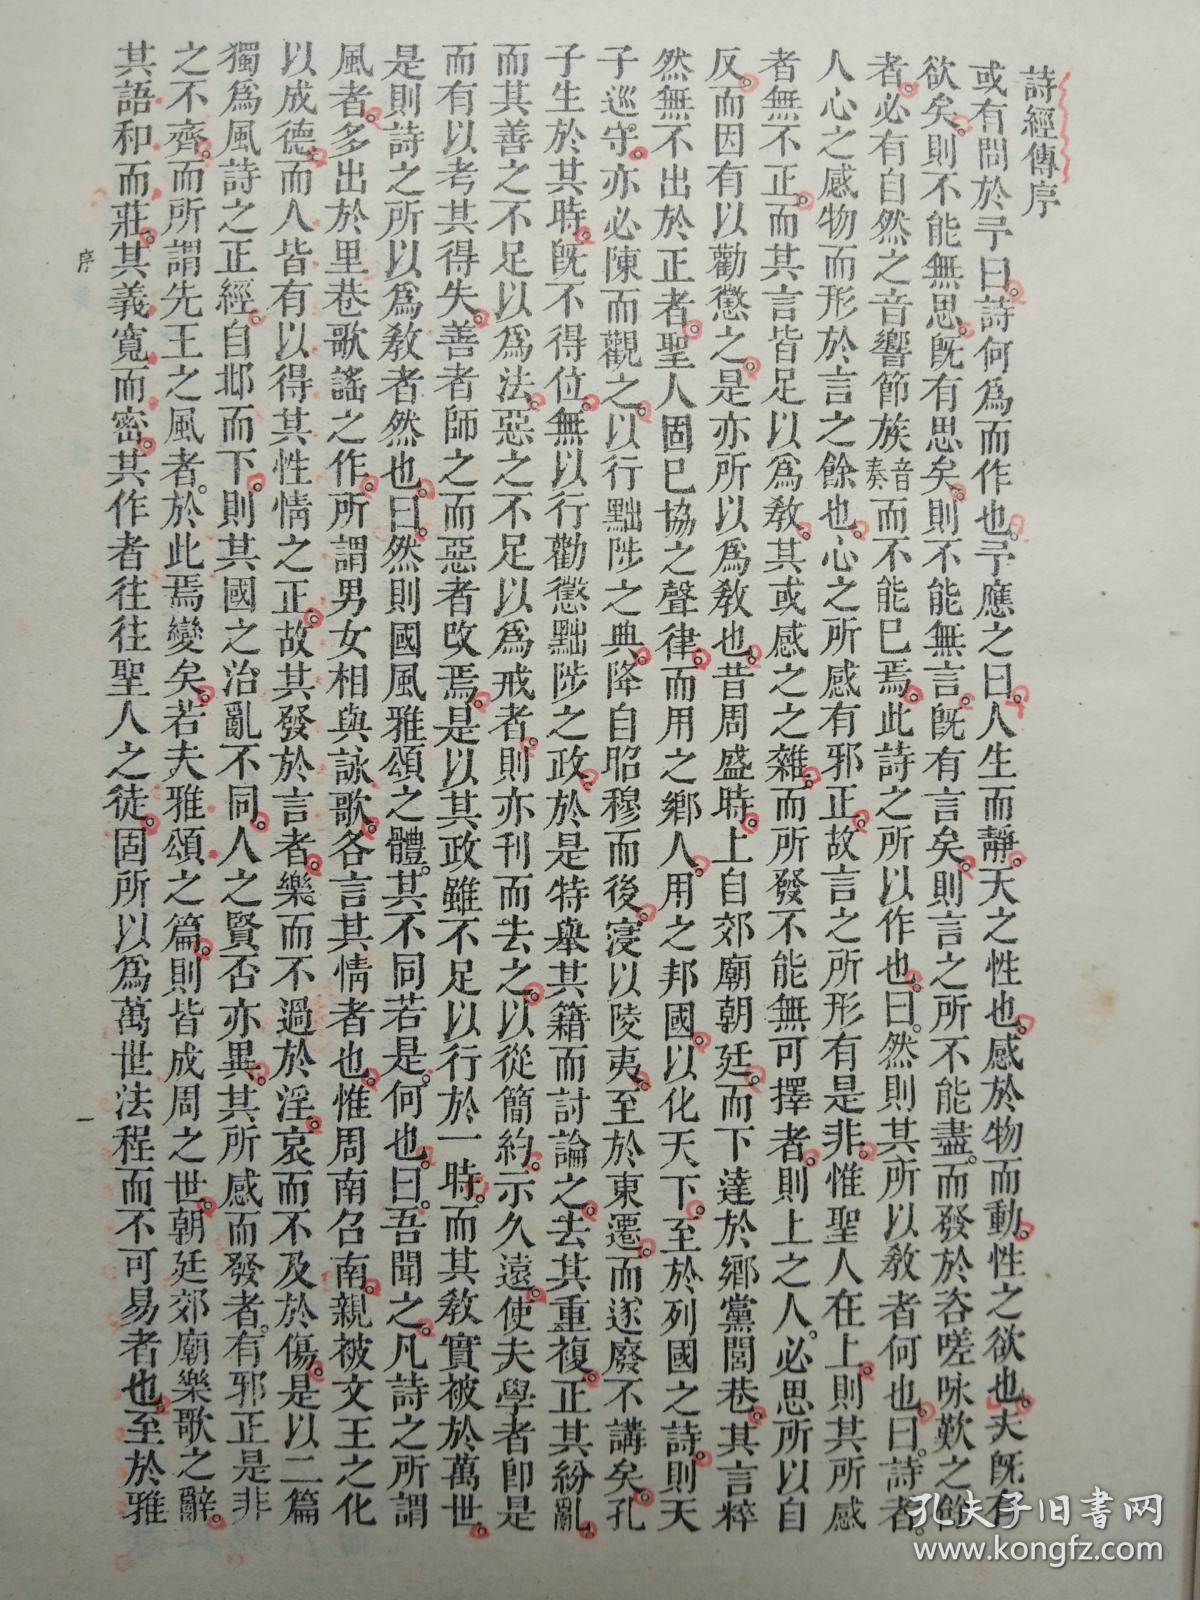 詩經傳序
或有問於予曰。詩何爲而作也。予應之曰。人生而靜。天之性也。感於物而動。性之欲也。夫旣有
欲矣。則不能無思。旣有思矣。則不能無言。旣有言矣。則言之所不能盡。而發於咨嗟咏歎之餘
者。必有自然之音響節族音奏而不能已焉。此詩之所以作也。曰。然則其所以敎者何也。曰。詩者。
人心之感物而形於言之餘也。心之所感有邪正。故言之所形有是非。惟聖人在上。則其所感
者無不正。而其言皆足以爲敎。其或感之之雜。而所發不能無可擇者。則上之人。必思所以自
反。而因有以勸懲之。是亦所以爲敎也。昔周盛時。上自郊廟朝廷。而下達於鄉黨閭巷。其言粹
然無不出於正者。聖人固已協之聲律。而用之鄉人。用之邦國。以化天下。至於列國之詩。則天
子巡守。亦必陳而觀之。以行黜陟之典。降自昭穆而後。寖以陵夷。至於東遷。而遂廢不講矣。孔
子生於其時。旣不得位。無以行勸懲黜陟之政。於是特舉其籍而討論之。去其重複。正其紛亂。
而其善之不足以爲法。惡之不足以爲戒者。則亦刊而去之。以從簡約。示久遠。使夫學者卽是
而有以考其得失。善者師之而惡者改焉。是以其政雖不足以行於一時。而其敎實被於萬世。
是則詩之所以爲敎者然也。曰。然則國風雅頌之體。其不同若是。何也。曰。吾聞之。凡詩之所謂
風者。多出於里巷歌謠之作。所謂男女相與詠歌。各言其情者也。惟周南召南。親被文王之化
以成德。而人皆有以得其性情之正。故其發於言者。樂而不過於淫。哀而不及於傷。是以二篇
獨爲風詩之正經。自邶而下。則其國之治亂不同。人之賢否亦異。其所感而發者。有邪正是非
之不齊。而所謂先王之風者。於此焉變矣。若夫雅頌之篇。則皆成周之世。朝廷郊廟樂歌之辭。
其語和而莊。其義寬而密。其作者往往聖人之徒。固所以爲萬世法程而不可易者也。至於雅
序
一
孔夫子旧书网
www.kongfz.com